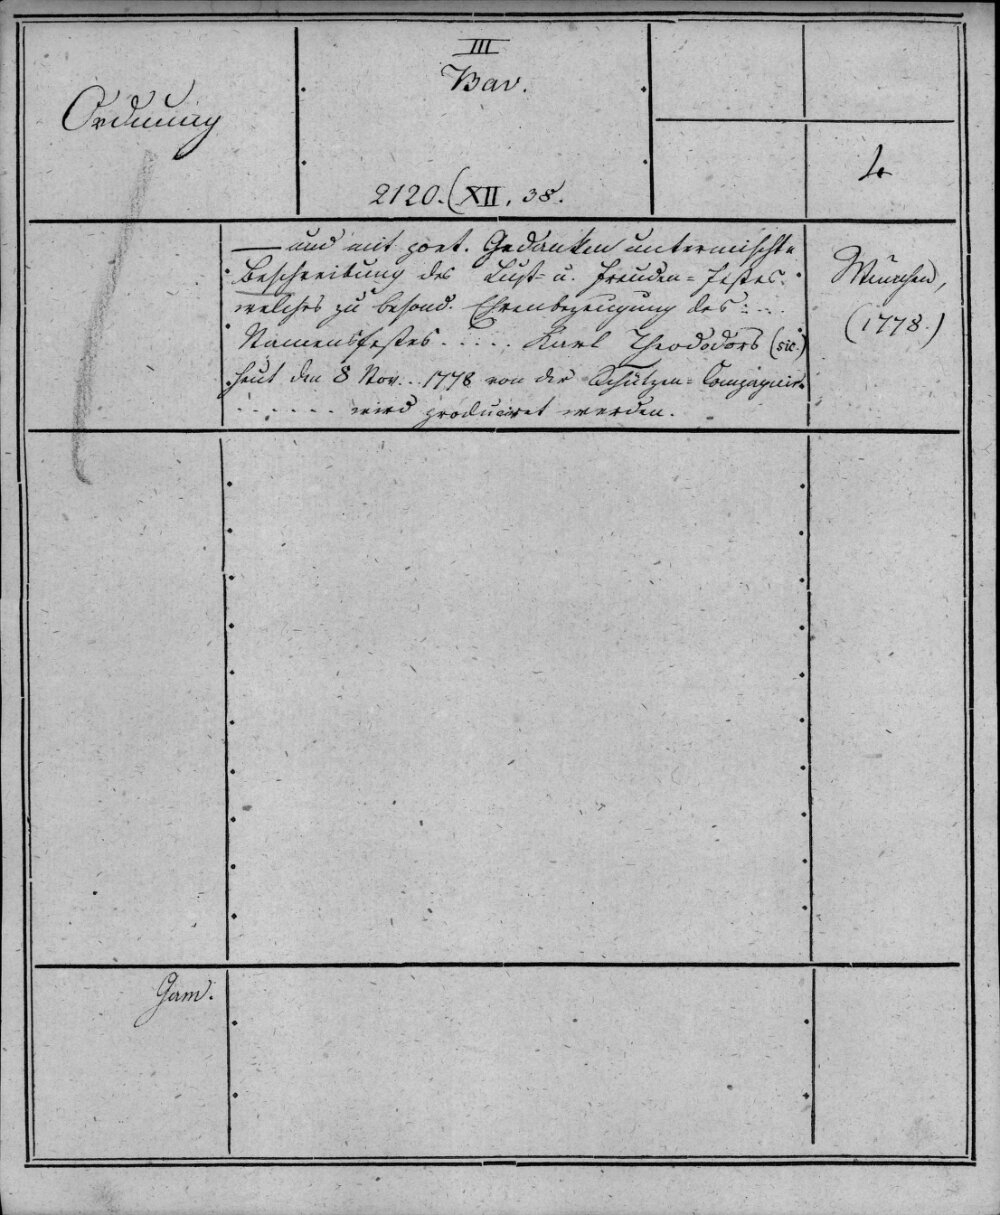 III
Bav.
Ordnung
4.
2120. (XII, 38.
— und mit poet. Gedanken untermischte
Beschreibung des Lust= u. Freuden=Festes.
welches zu besond. Ehrenbezeugung des . . . .
Namensfestes . . . . . Karl Theododors (sic.)
heut den 8 Nov. . 1778 von der Schützen=Compagnie
. . . . . . wird produciret werden.
München,
(1778.)
Gam.